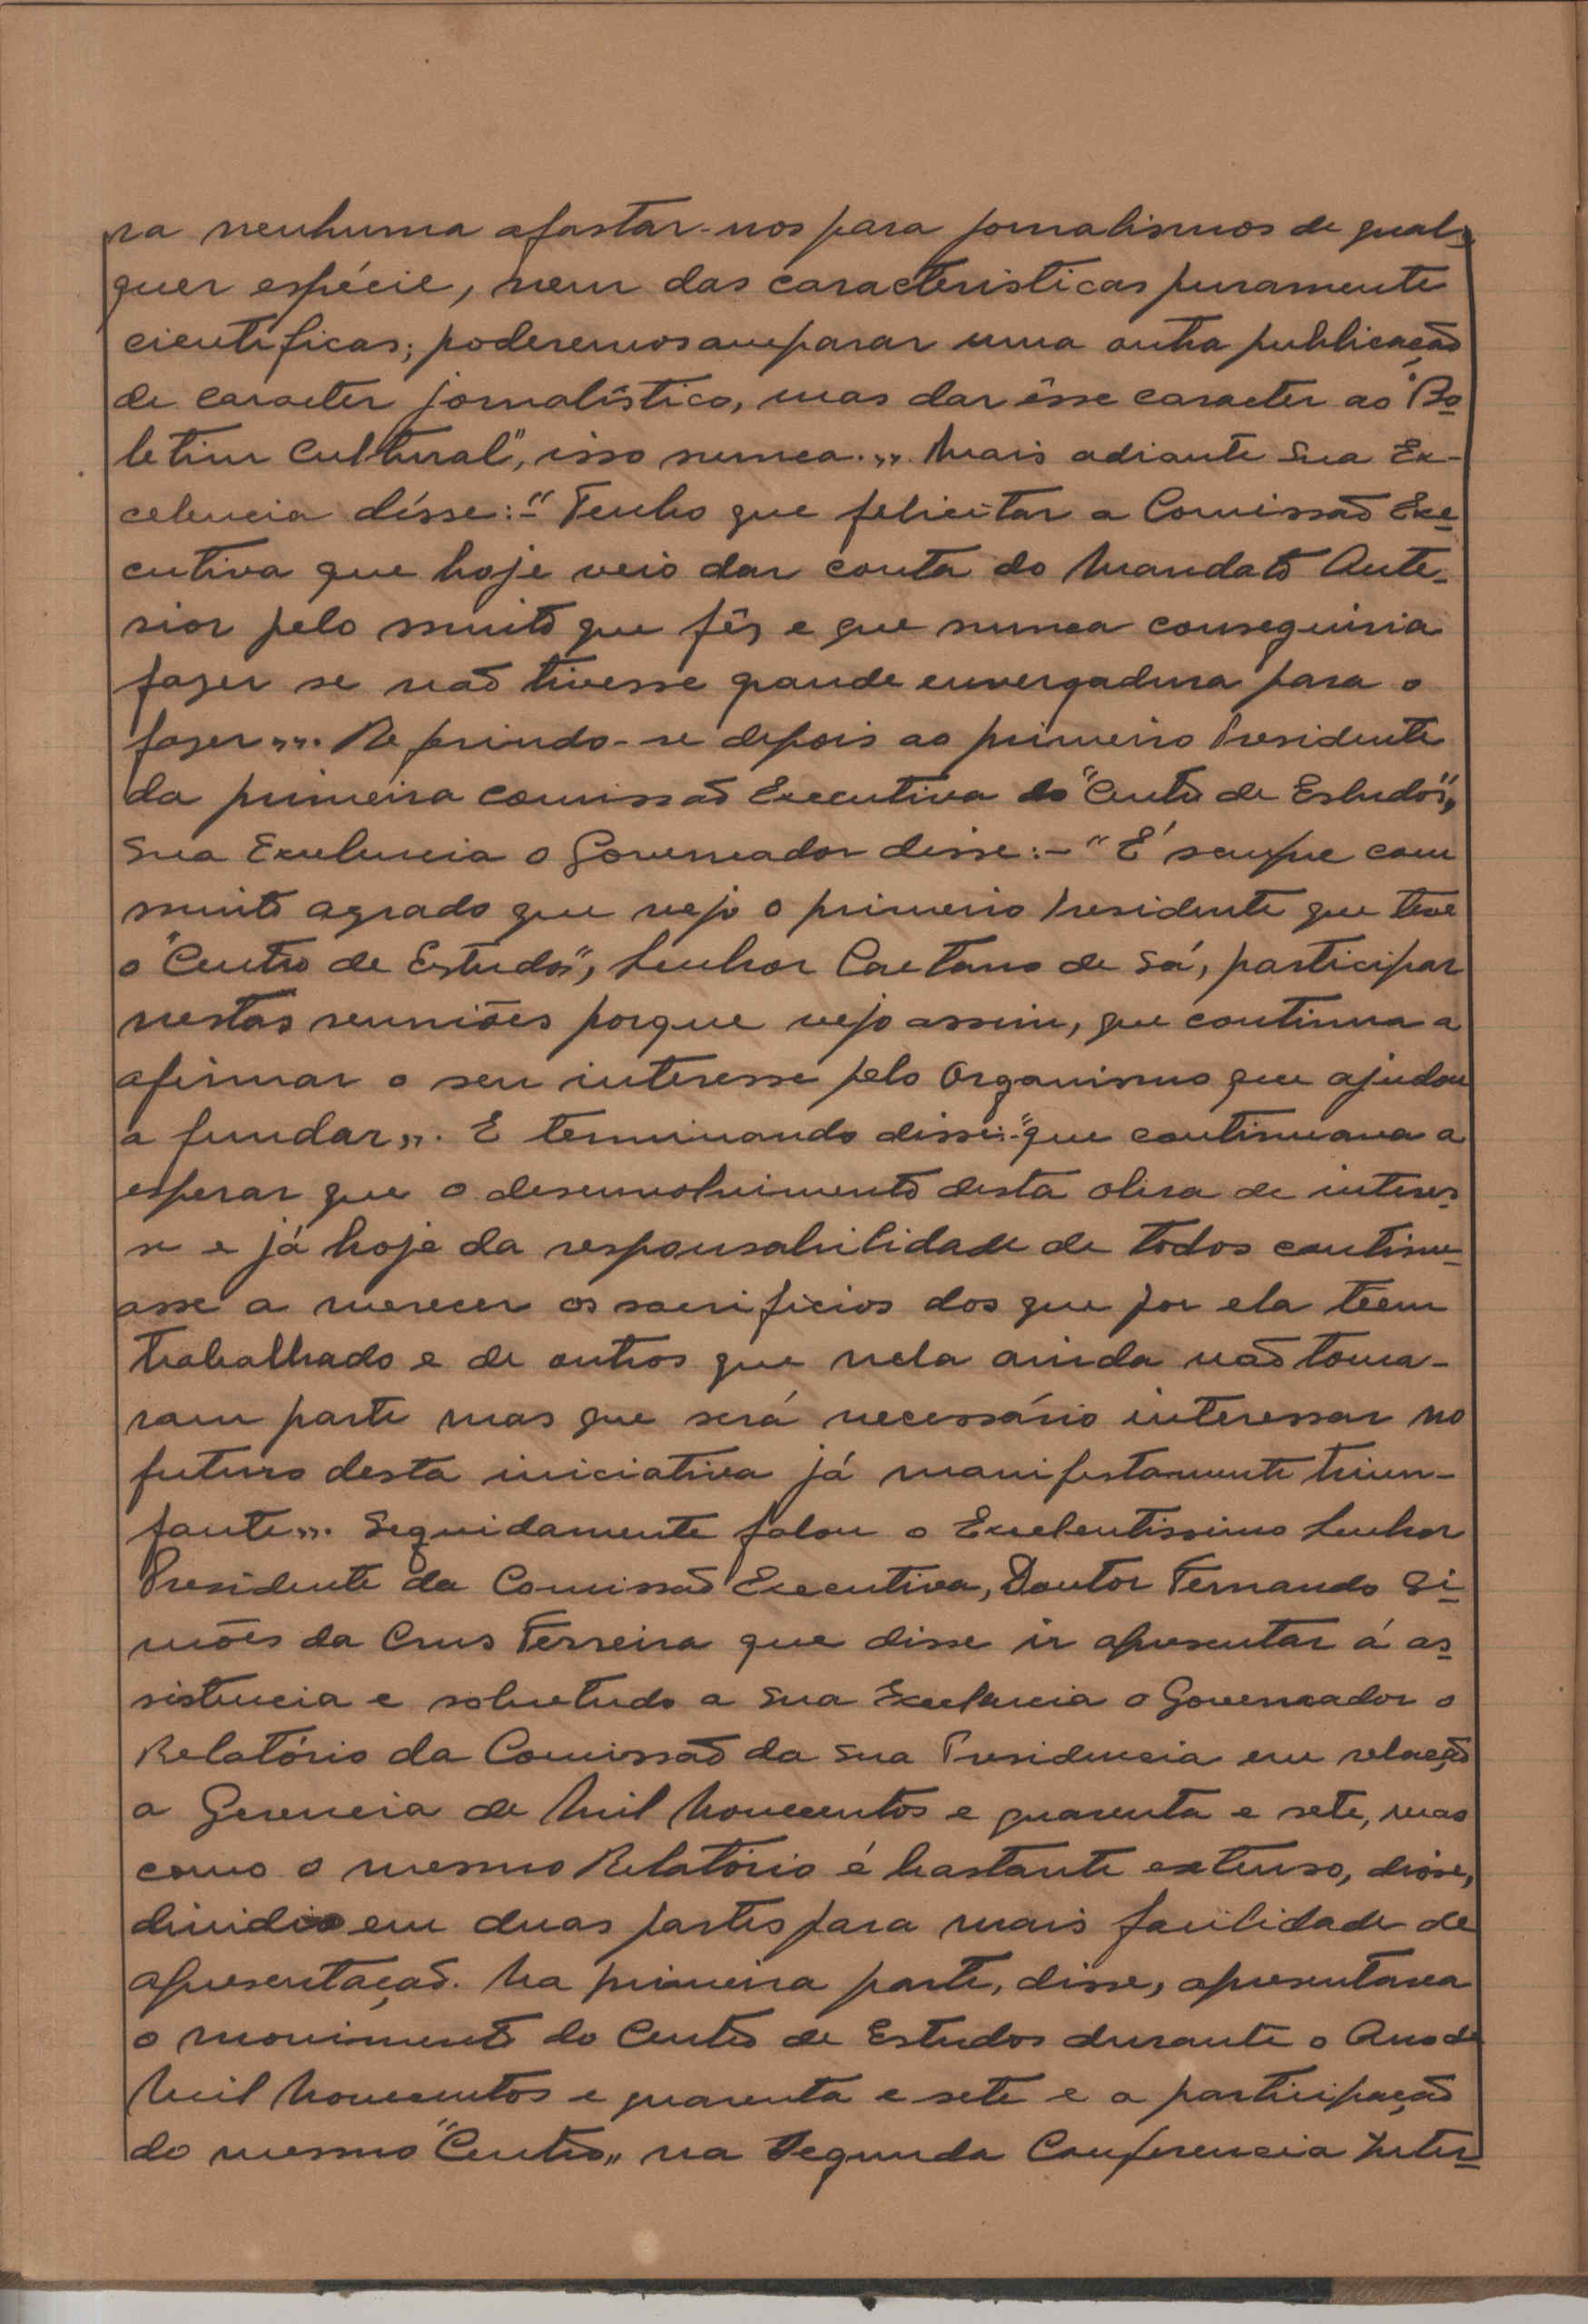 ra nenhuma afastar-nos para jornalismos de qual-
quer espécie, nem das caracteristicas puramente
cientificas; poderemos amparar uma outra publicação
de caracter jornalístico, mas dar êsse caracter ao "Bo-
letim Cultural", isso nunca.,, Mais adiante Sua Ex-
celencia disse:-"Tenho que felicitar a Comissão Exe-
cutiva que hoje veio dar conta do Mandato Ante-
rior pelo muito que fês e que nunca conseguiria
fazer se não tivesse grande envergadura para o
fazer,,. Referindo-se depois ao primeiro Presidente
da primeira comissão Executiva do "Centro de Estudos",
Sua Excelencia o Governador disse:-"É sempre com
muito agrado que vejo o primeiro Presidente que teve
o "Centro de Estudos", Senhor Caetano de Sá, participar
nestas reuniões porque vejo assim, que continua a
afirmar o seu interesse pelo Organismo que ajudou
a fundar,,. E terminando disse:-"que continuava a
esperar que o desenvolvimento desta obra de interes-
se e já hoje da responsabilidade de todos continu-
asse a merecer os sacrificios dos que por ela teem
trabalhado e de outros que nela ainda não toma-
ram parte mas que será necessário interessar no
futuro desta iniciativa já manifestamente triun-
fante,,. Seguidamente falou o Excelentissimo Senhor
Presidente da Comissão Executiva, Doutor Fernando Si-
mões da Crus Ferreira que disse ir apresentar á as-
sistencia e sobretudo a Sua Excelencia o Governador o
Relatório da Comissão da Sua Presidencia em relação
a Gerencia de Mil Novecentos e quarenta e sete, mas
como o mesmo Relatório é bastante extenso, disse,
dividio em duas partes para mais facilidade de
apresentação. Na primeira parte, disse, apresentava
o movimento do Centro de Estudos durante o Ano de
Mil Novecentos e quarenta e sete e a participação
do mesmo "Centro,, na Segunda Conferencia Inter-